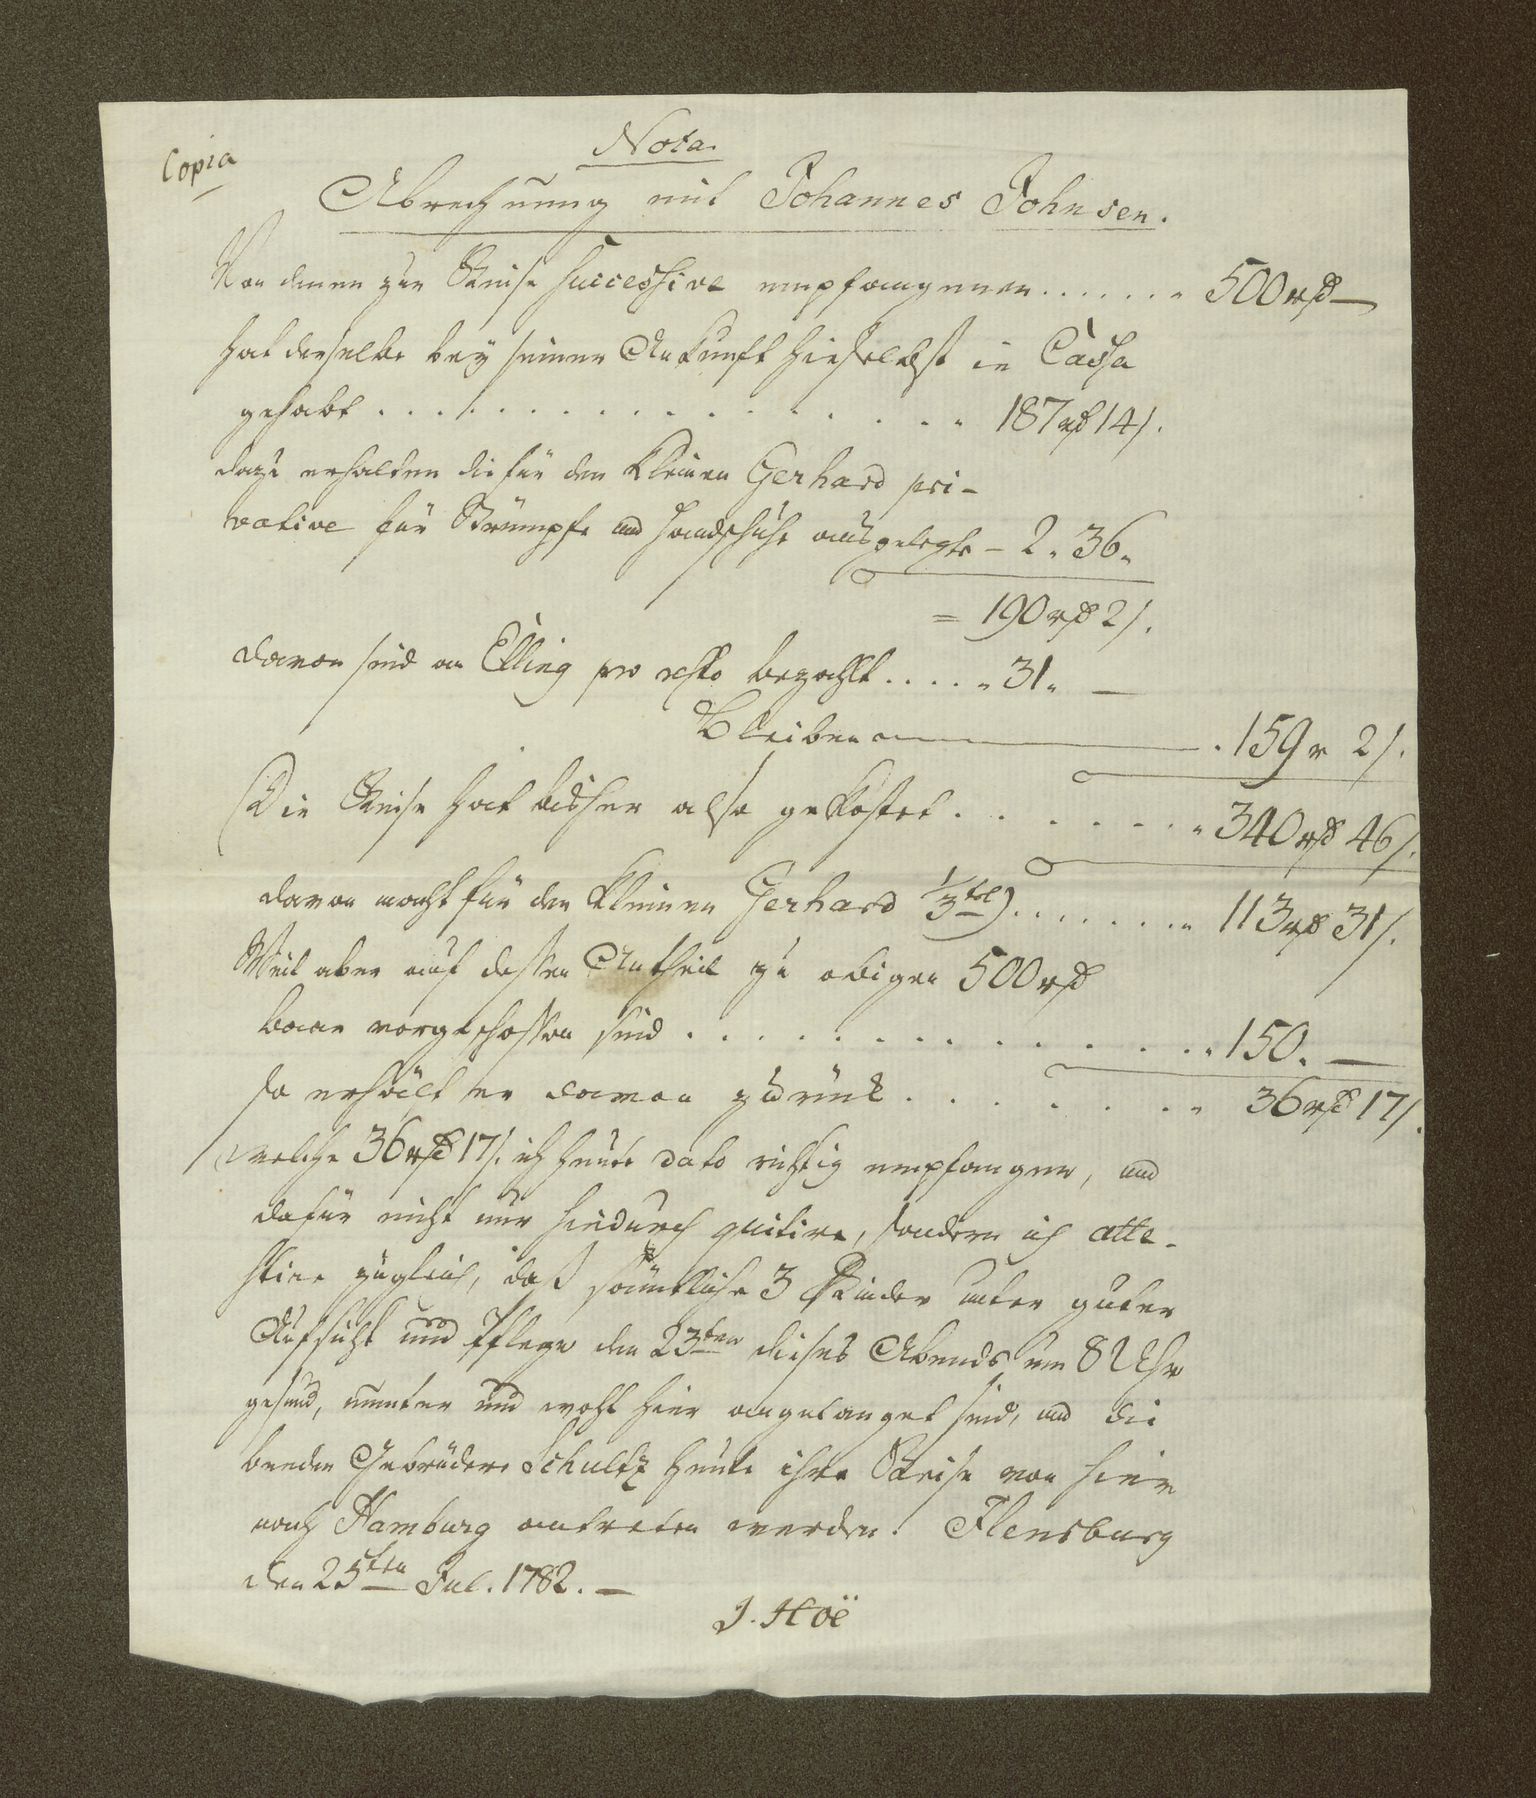 Copia
Nota.
Abrechnung mit Johannes Johnsen.
Von denen zur Reise successive empfangenen . . . . . . . 500 rß —
hat derselbe bey seiner Ankunft hieselbst in Cassa
gehabt . . . . . . . . . . . . . . . . . 187 rß 14 ß.
dazu erhalten die für den kleinen Gerhard pri-
vative für Strümpfe und Handschuhe ausgelegte – 2 „ 36 „
= 190 rß 2 ß.
davon sind an Elling pro resto bezahlt . . . . . 31 „ —
Bleiben — . 159 r 2 ß.
Die Reise hat bisher also gekostet . . . . . . . . 340 rß 46 ß.
davon macht für den kleinen Gerhard 1/3tel) . . . . . . . . 113 rß 31 ß.
Weil aber auf dessen Antheil zu obigen 500 rß
baar vorgeschossen sind . . . . . . . . . . . . . . . 150. —
so erhält er davon zurück . . . . . . . . 36 rß 17 ß.
welche 36 rß 17 ß. ich heute dato richtig empfangen, und
dafür nicht nur hiedurch quitire, sondern ich atte-
stire zugleich, daß sämtliche 3 Kinder unter guter
Aufsicht und Pflege den 23ten dieses Abends um 8 Uhr
gesund, munter und wohl hier angelanget sind, und die
beeden Gebrüdere Schultz heute ihre Reise von hier
nach Hamburg antreten werden. Flensburg
den 25ten Jul. 1782. —
J. Höë